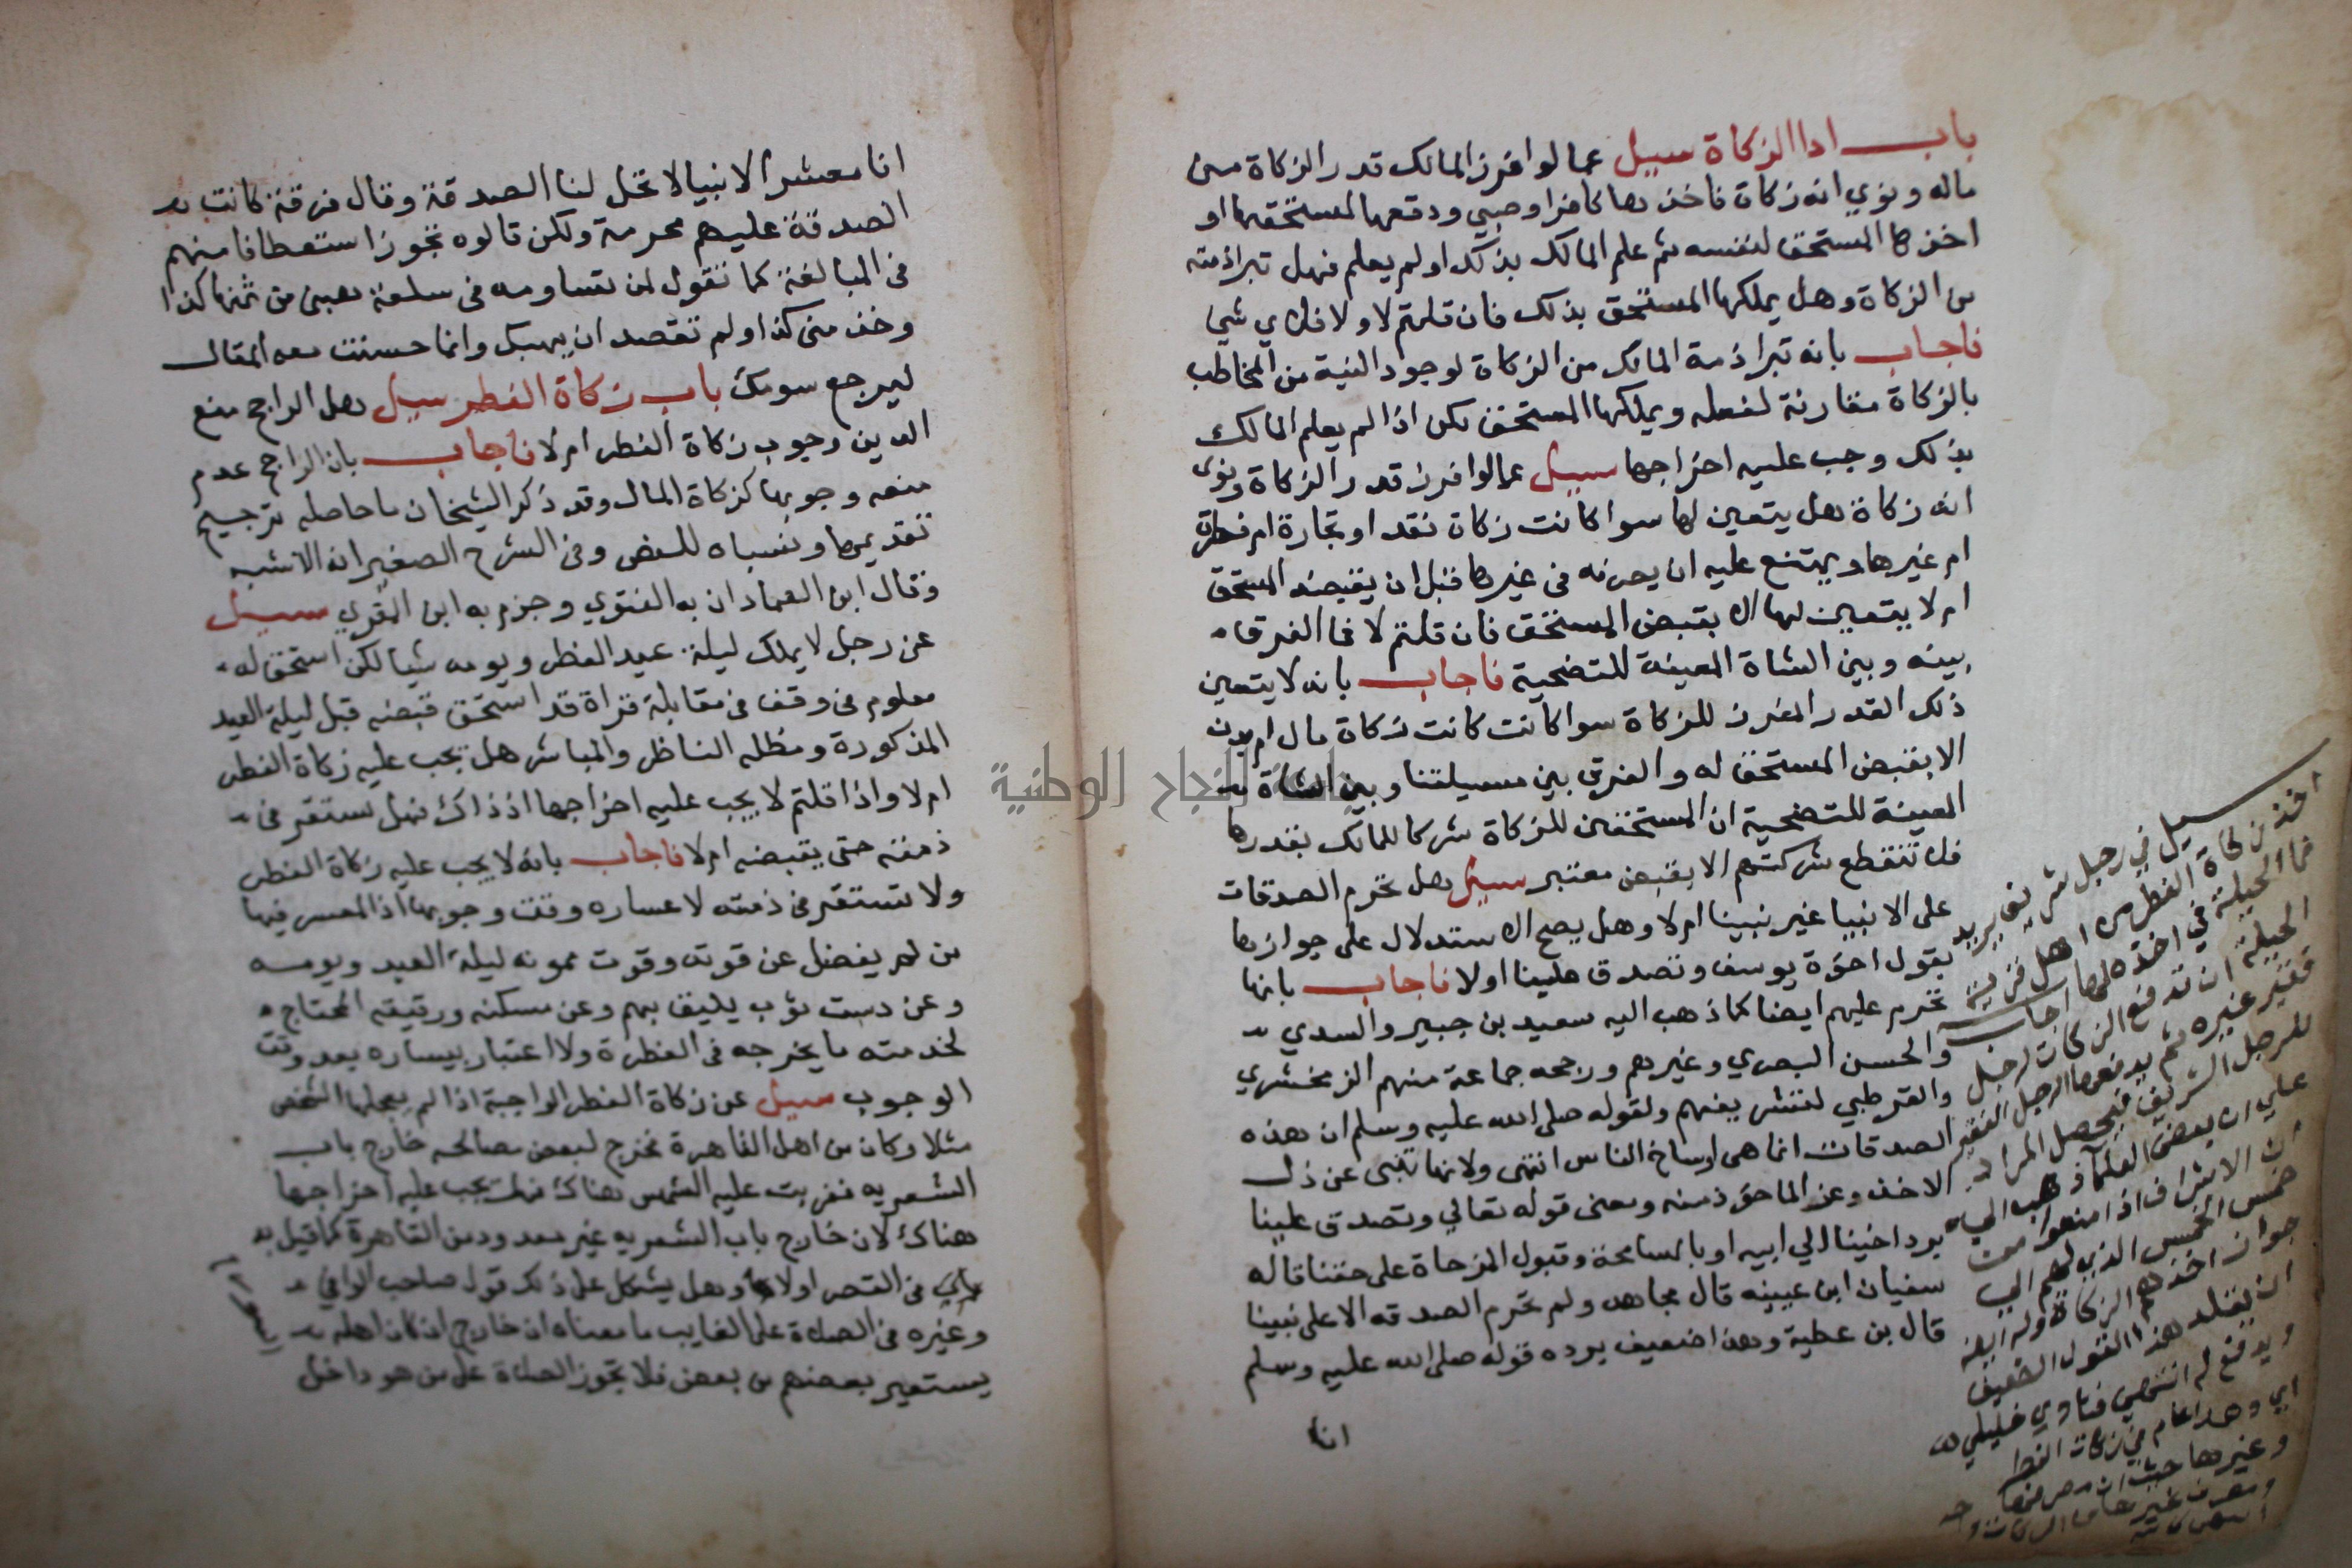 باب ادا الزكاة سيل عما لو افرز المالك قدر الزكاة من
ماله ونوي انه زكاة فاخذها كافرا وصبي ودفعها لمستحقها او
اخذها المستحق لنفسه ثم علم المالك بذلك او لم يعلم فهل تبرا ذمته
من الزكاة وهل يملكها المستحق بذلك فان قلتم لا ولا فلاي شي
فاجاب بانه تبرا ذمة المالك من الزكاة لوجود النية من المخاطب
بالزكاة مقارنة لفعله ويملكها المستحق لكن اذا لم يعلم المالك
بذلك وجب عليه اخراجها سيل عما لو افرز قدر الزكاة ونوى
انه زكاة هل يتعين لها سوا كانت زكاة نقد او تجارة ام فطرة
ام غيرها ويمتنع عليه ان يصرفه في غيرها قبل ان يقبضه المستحق
ام لا يتعين لها الا بقبض المستحق فان قلتم لا فما الفرق
بينه وبين الشاة المعينة للتضحية فاجاب بانه لا يتعين
ذلك القدر المفرز للزكاة سوا كانت كانت زكاة مال ام بدن
الا بقبض المستحق له والفرق بين مسيلتنا وبين الشاة
المعينة للتضحية ان المستحقين للزكاة شركا للمالك بقدرها
فلا تنقطع شركتهم الا بقبض معتبر سيل هل تحرم الصدقات
على الانبيا غير نبينا ام لا وهل يصح الاستدلال على جوازها
بقول اخوة يوسف وتصدق علينا اولا فاجاب بانها
تحرم عليهم ايضا كما ذهب اليه سعيد بن جبير والسدي
والحسن البصري وغيرهم ورجحه جماعة منهم الزمخشري
والقرطبي لتشريفهم ولقوله صلى الله عليه وسلم ان هذه
الصدقات انما هي اوساخ الناس انتهى ولانها تنبى عن ذل
الاخذ وعز الماخوذ منه ومعنى قوله تعالي وتصدق علينا
برد اخينا الي ابيه او بالمسامحة وقبول المزجاة على حقنا قاله
سفيان ابن عيينه قال مجاهد ولم تحرم الصدقه الا على نبينا
قال بن عطية وهذا ضعيف يرده قوله صلى الله عليه وسلم
انا
سيل في رجل شريف يريد
اخذ زكاة الفطر من اهل قرية
فما الحيلة في اخذه لها اجاب
الحيلة ان تدفع الزكات لرجل
فقير غيره ثم يدفعها الرجل الفقير
للرجل الشريف فيحصل المراد
علي ان بعض العلما ذهب الي
ان الاشراف اذا منعوا من
خمس الخمس الذي لهم الي
جواز اخذهم الزكاة وله ايضا
ان يقلد هذا القول الضعيف
ويدفع له انتهى فتاوي خليلي
اي وهذا عام في زكاة الفطر
وغيرها حيث ان مصرفها واحد
جامعة النجاح الوطنية
انا معشر الانبيا لا تحل لنا الصدقة وقال فرقة كانت
الصدقة عليهم محرمة ولكن قالوه تجوزا استعطافا منهم
في المبالغة كما تقول لمن تساومه في سلعة هبني من ثمنها كذا
وخذ مني كذا ولم تقصد ان يهبك وانما حسنت معه المقال
ليرجع سومك باب زكاة الفطر سيل هل الراجح منع
الدين وجوب زكاة الفطر ام لا فاجاب بان الراجح عدم
منعه وجوبها كزكاة المال وقد ذكر الشيخان ما حاصله ترجيح
تقديمها ونسباه للنص وفي الشرح الصغير انه الاشبه
وقال ابن العماد ان به الفتوي وجزم به ابن المقري سيل
عن رجل لا يملك ليلة عيد الفطر ويومه شيا لكن استحق له
معلوم في وقف في مقابلة قراة قد استحق قبضه قبل ليلة العيد
المذكورة ومطله الناظر والمباشر هل يجب عليه زكاة الفطر
ام لا واذا قلتم لا يجب عليه اخراجها اذ ذاك فهل تستقر في
ذمته حتى يقبضه ام لا فاجاب بانه لا يجب عليه زكاة الفطر
ولا تستقر في ذمته لاعساره وقت وجوبها اذ المعسر فيها
من لم يفضل عن قوته وقوت ممونه ليلة العيد ويومه
وعن دست ثوب يليق بهم وعن مسكنه ورقيقه المحتاج
لخدمته ما يخرجه في الفطرة ولا اعتبار بيساره بعد وقت
الوجوب سيل عن زكاة الفطر الواجبة اذا لم يعجلها الشخص
مثلا وكان من اهل القاهرة فخرج لبعض مصالحه خارج باب
الشعريه فغربت عليه الشمس هناك فهل يجب عليه اخراجها
هناك لان خارج باب الشعريه غير معدود من القاهرة كما قيل به
في القصر اولا وهل يشكل على ذلك قول صاحب الوافي
وغيره في الصلاة على الغايب ما معناه ان خارج ان كان اهله
يستعير بعضهم من بعض فلا تجوز الصلاة على من هو داخل